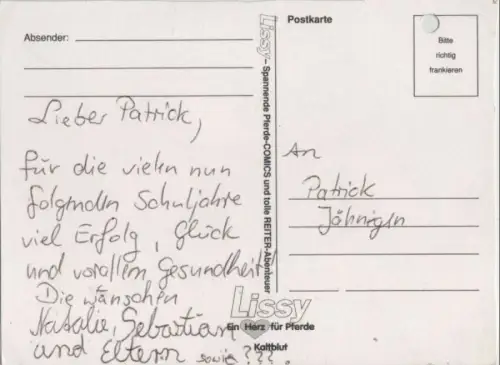 Absender:
Lieber Patrick,
für die vielen nun
folgenden Schuljahre
viel Erfolg, Glück
und vorallem Gesundheit!
Die wünschen
Natalie, Sebastian
und Eltern sowie ???.
Lissy – Spannende Pferde-COMICS und tolle REITER-Abenteuer
Postkarte
Bitte
richtig
frankieren
An
Patrick
Jähnigen
Lissy
Ein Herz für Pferde
Kaltblut